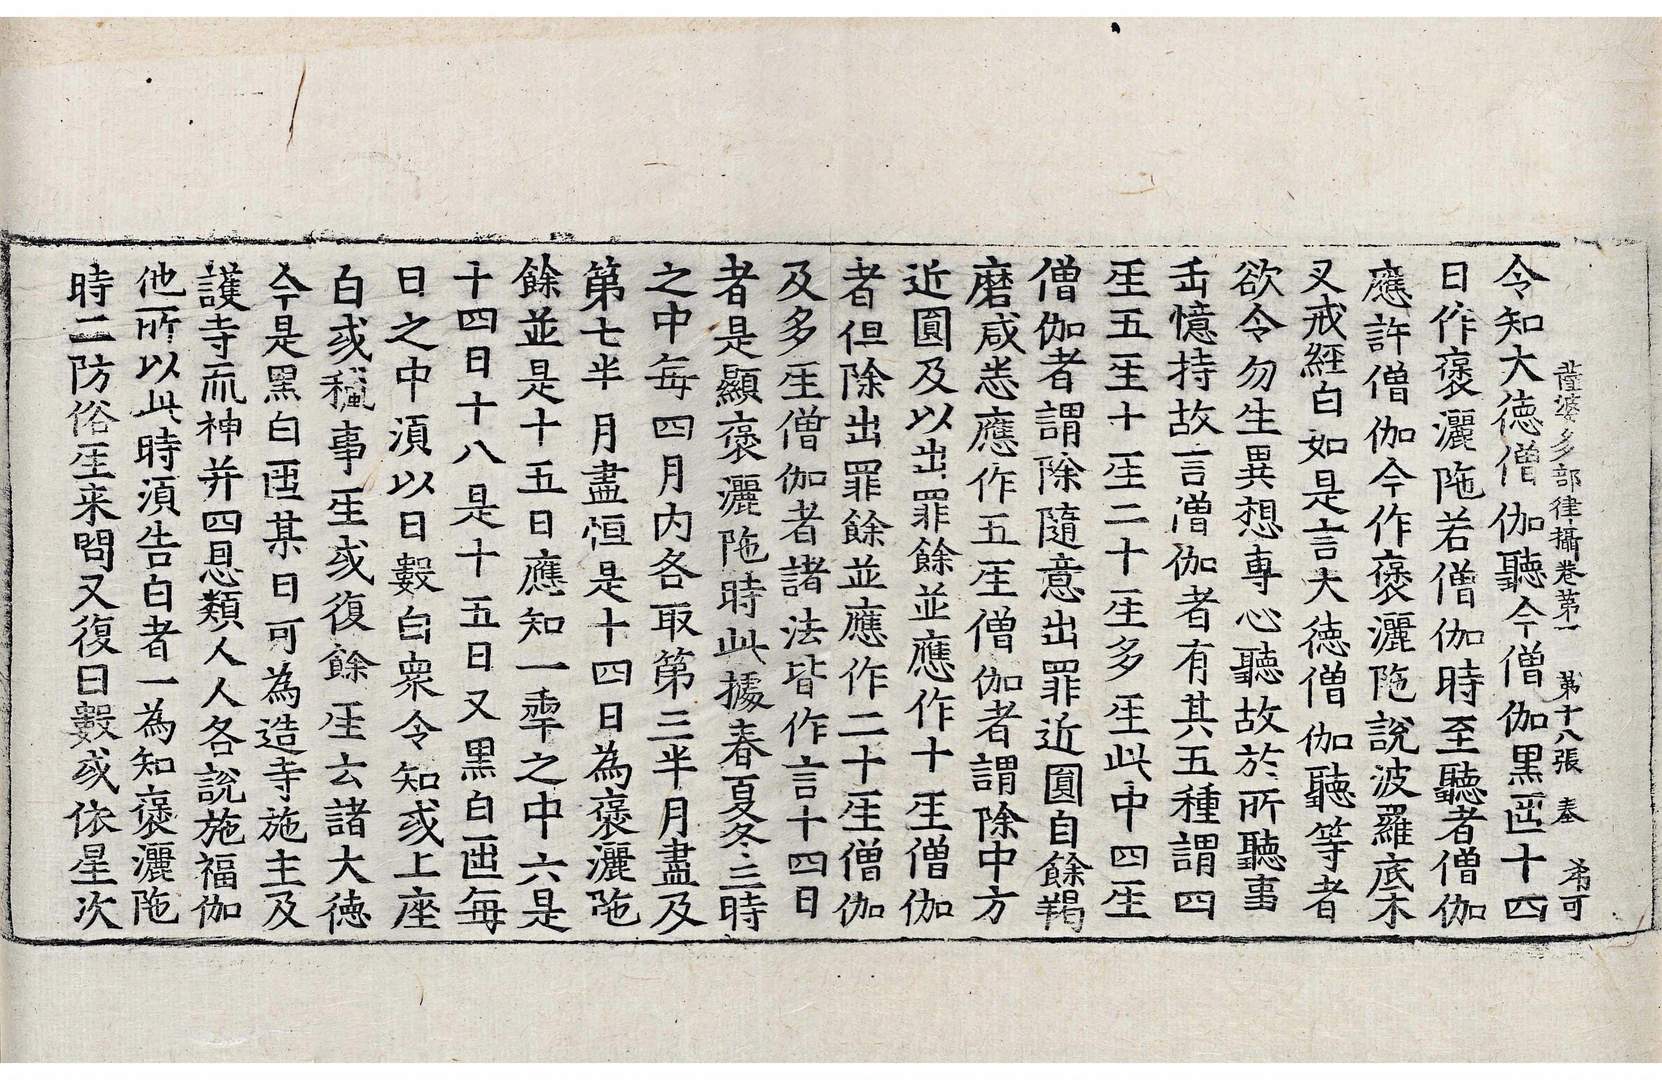 薩婆多部律攝卷第一　第十八張　奉　希可
令知大德僧伽聽今僧伽黑𠥱十四
日作褒灑陁若僧伽時至聽者僧伽
應許僧伽今作褒灑陁說波羅底木
叉戒經白如是言大德僧伽聽等者
欲令勿生異想專心聽故於所聽事
𠙺憶持故言僧伽者有其五種謂四
𤯔五𤯔十𤯔二十𤯔多𤯔此中四𤯔
僧伽者謂除隨意出罪近圓自餘羯
磨咸悉應作五𤯔僧伽者謂除中方
近圓及以出罪餘並應作十𤯔僧伽
者但除出罪餘並應作二十𤯔僧伽
及多𤯔僧伽者諸法皆作言十四日
者是顯褒灑陁時此據春夏冬三時
之中每四月內各取第三半月盡及
第七半月盡恒是十四日為褒灑陁
餘並是十五日應知一𠡦之中六是
十四日十八是十五日又黑白𠥱每
日之中須以日數白衆令知或上座
白或穪事𤯔或復餘𤯔云諸大德
今是黑白𠥱某日可為造寺施主及
護寺而神并四恩類人人各說施福伽
他所以此時須告白者一為知褒灑陁
時二防俗𤯔来問又復日數或依星次